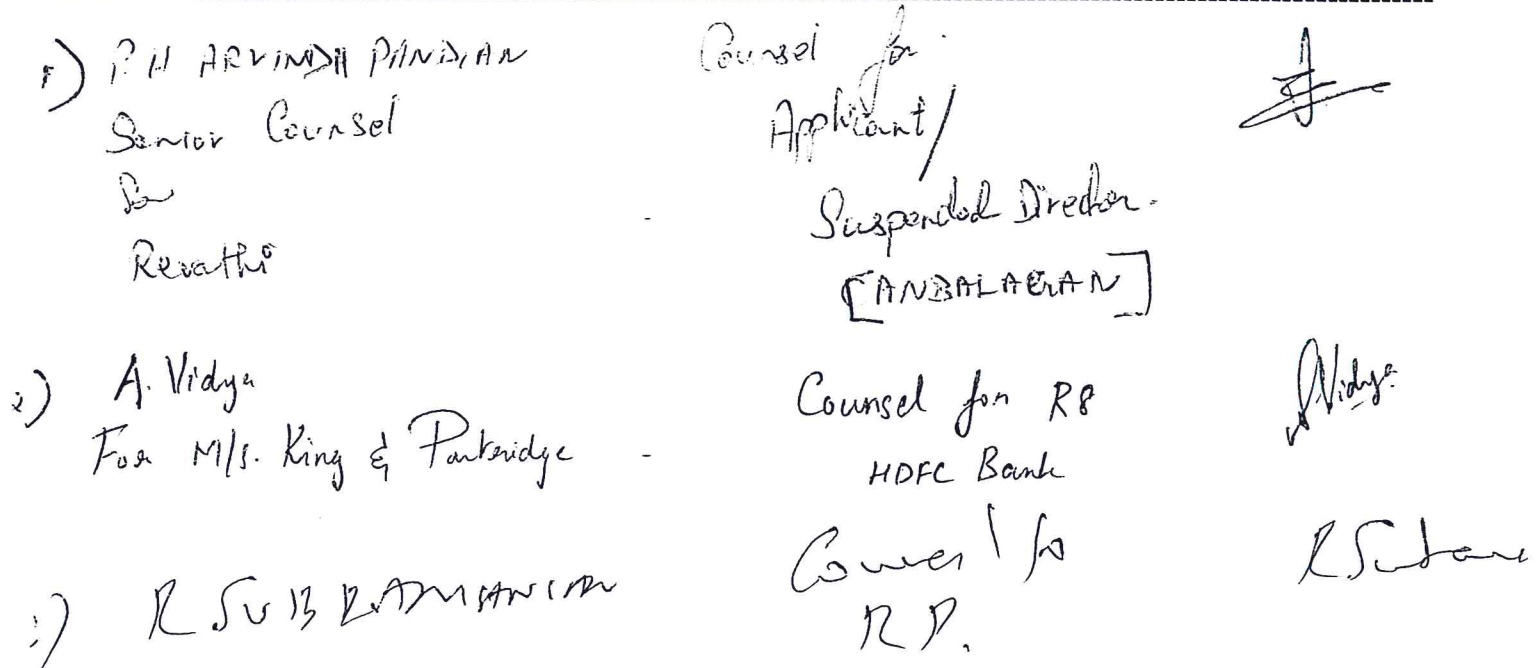 1) P H ARVINDH PANDIAN
Senior Counsel
for
Revathi
Counsel for
Applicant/
Suspended Director.
[ANBALAGAN]
2) A. Vidya
For M/s. King & Partridge -
Counsel for R8
HDFC Bank
A.Vidya
:) R SUBRAMANIAN
Counsel for
R P.